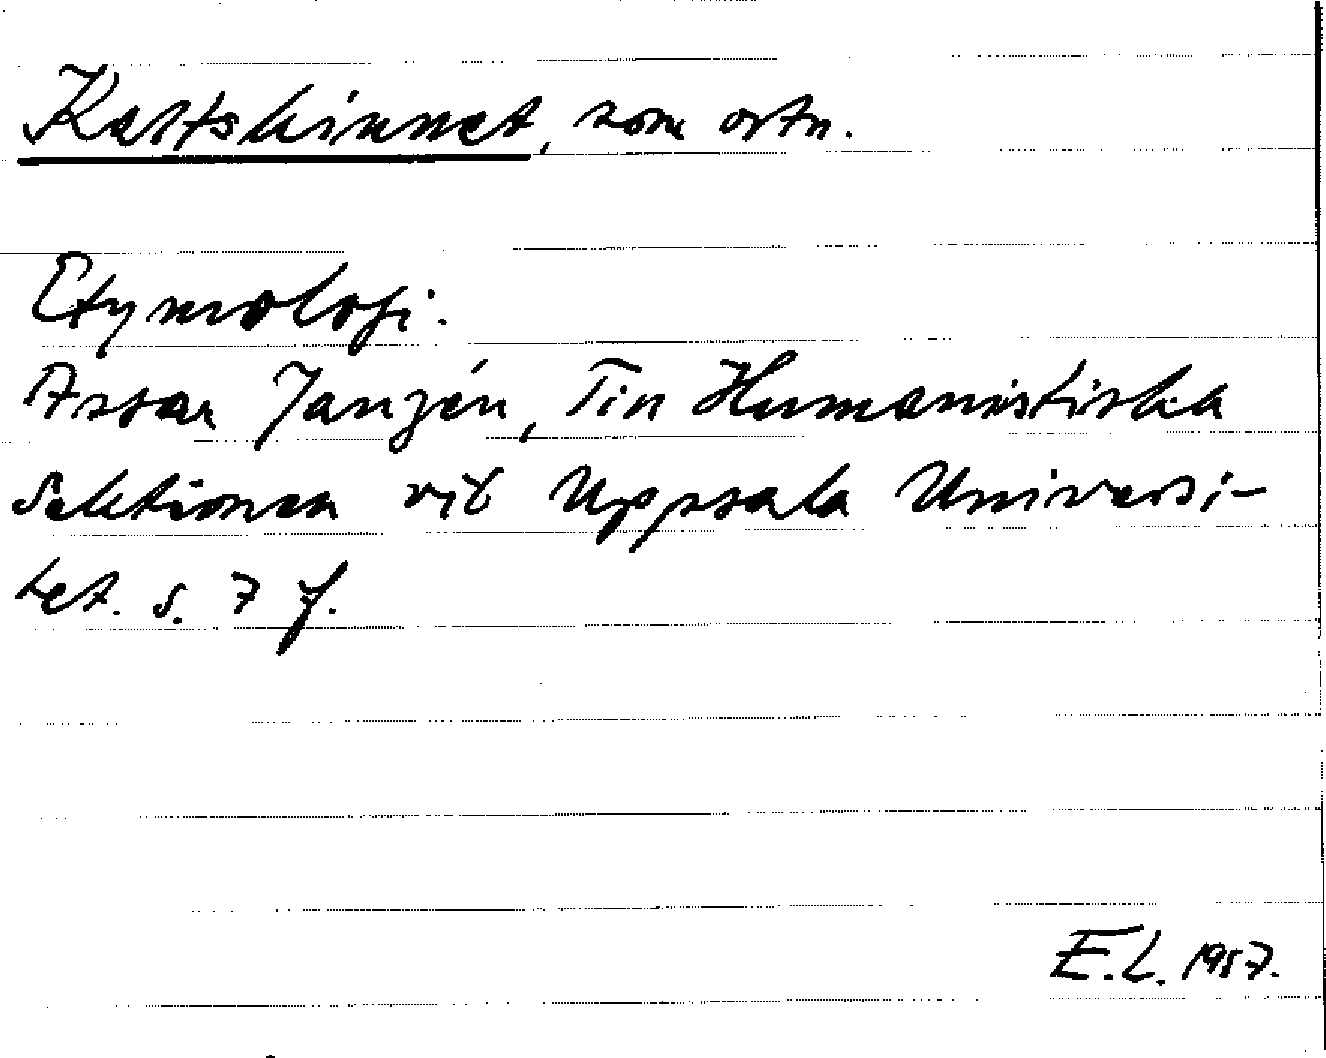 Kattskinnet, som ortn.
Etymologi.
Assar Janzén, Till Humanistiska
Sektionen vid Uppsala Universi-
tet. s. 7 f.
E.L. 1957.